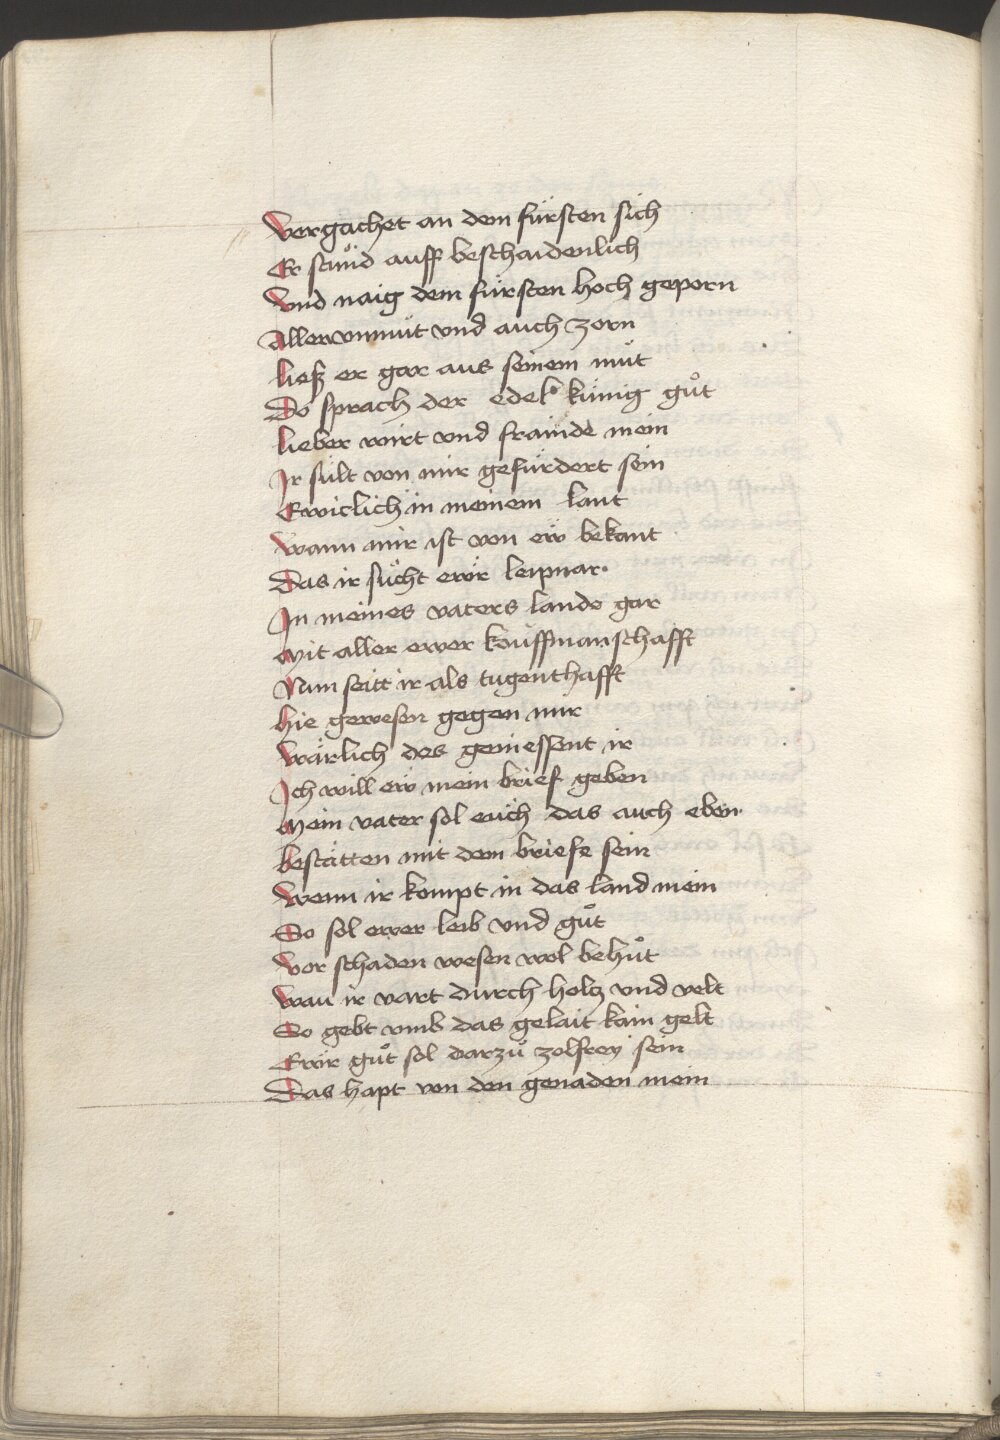 Vergachet an dem fürsten sich
Er stuͦnd auff beschaidenlich
Vnd naig dem fürsten hoch geporn
Aller vnmuͤt vnd auch zorn
ließ er gar aus seinem muͦt
Do sprach der edel künig guͦt
lieber wirt vnd frainde mein
Ir sült von mir gefürdert sein
Ewiclich in meinem lant
Wann mir ist von ew bekant
Das ir suͦcht ewr leipnar
In meines vaters lande gar
Mit aller ewer kouffmanschafft
Nun seitt ir als tugenthafft
hie gewesen gegen mir
Wärlich des geniessent ir
Ich will ew mein brief geben
Mein vater sol euch das auch eben
bestätten mit dem briefe sein
Wenn ir kompt in das land mein
So sol ewer leib vnd guͦt
Vor schaden wesen wol behuͦt
Wan ir vart durch holtz vnd velt
So gebt vmb das gelait kain gelt
Ewr guͦt sol darzuͦ zolfrey sein
Das hapt von den genaden mein